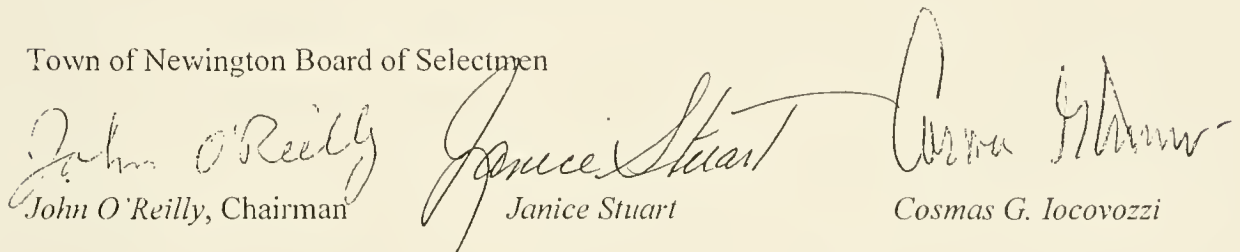 Town of Newington Board of Selectmen
John O'Reilly Janice Stuart
John O'Reilly, Chairman Janice Stuart Cosmas G. Iocovozzi